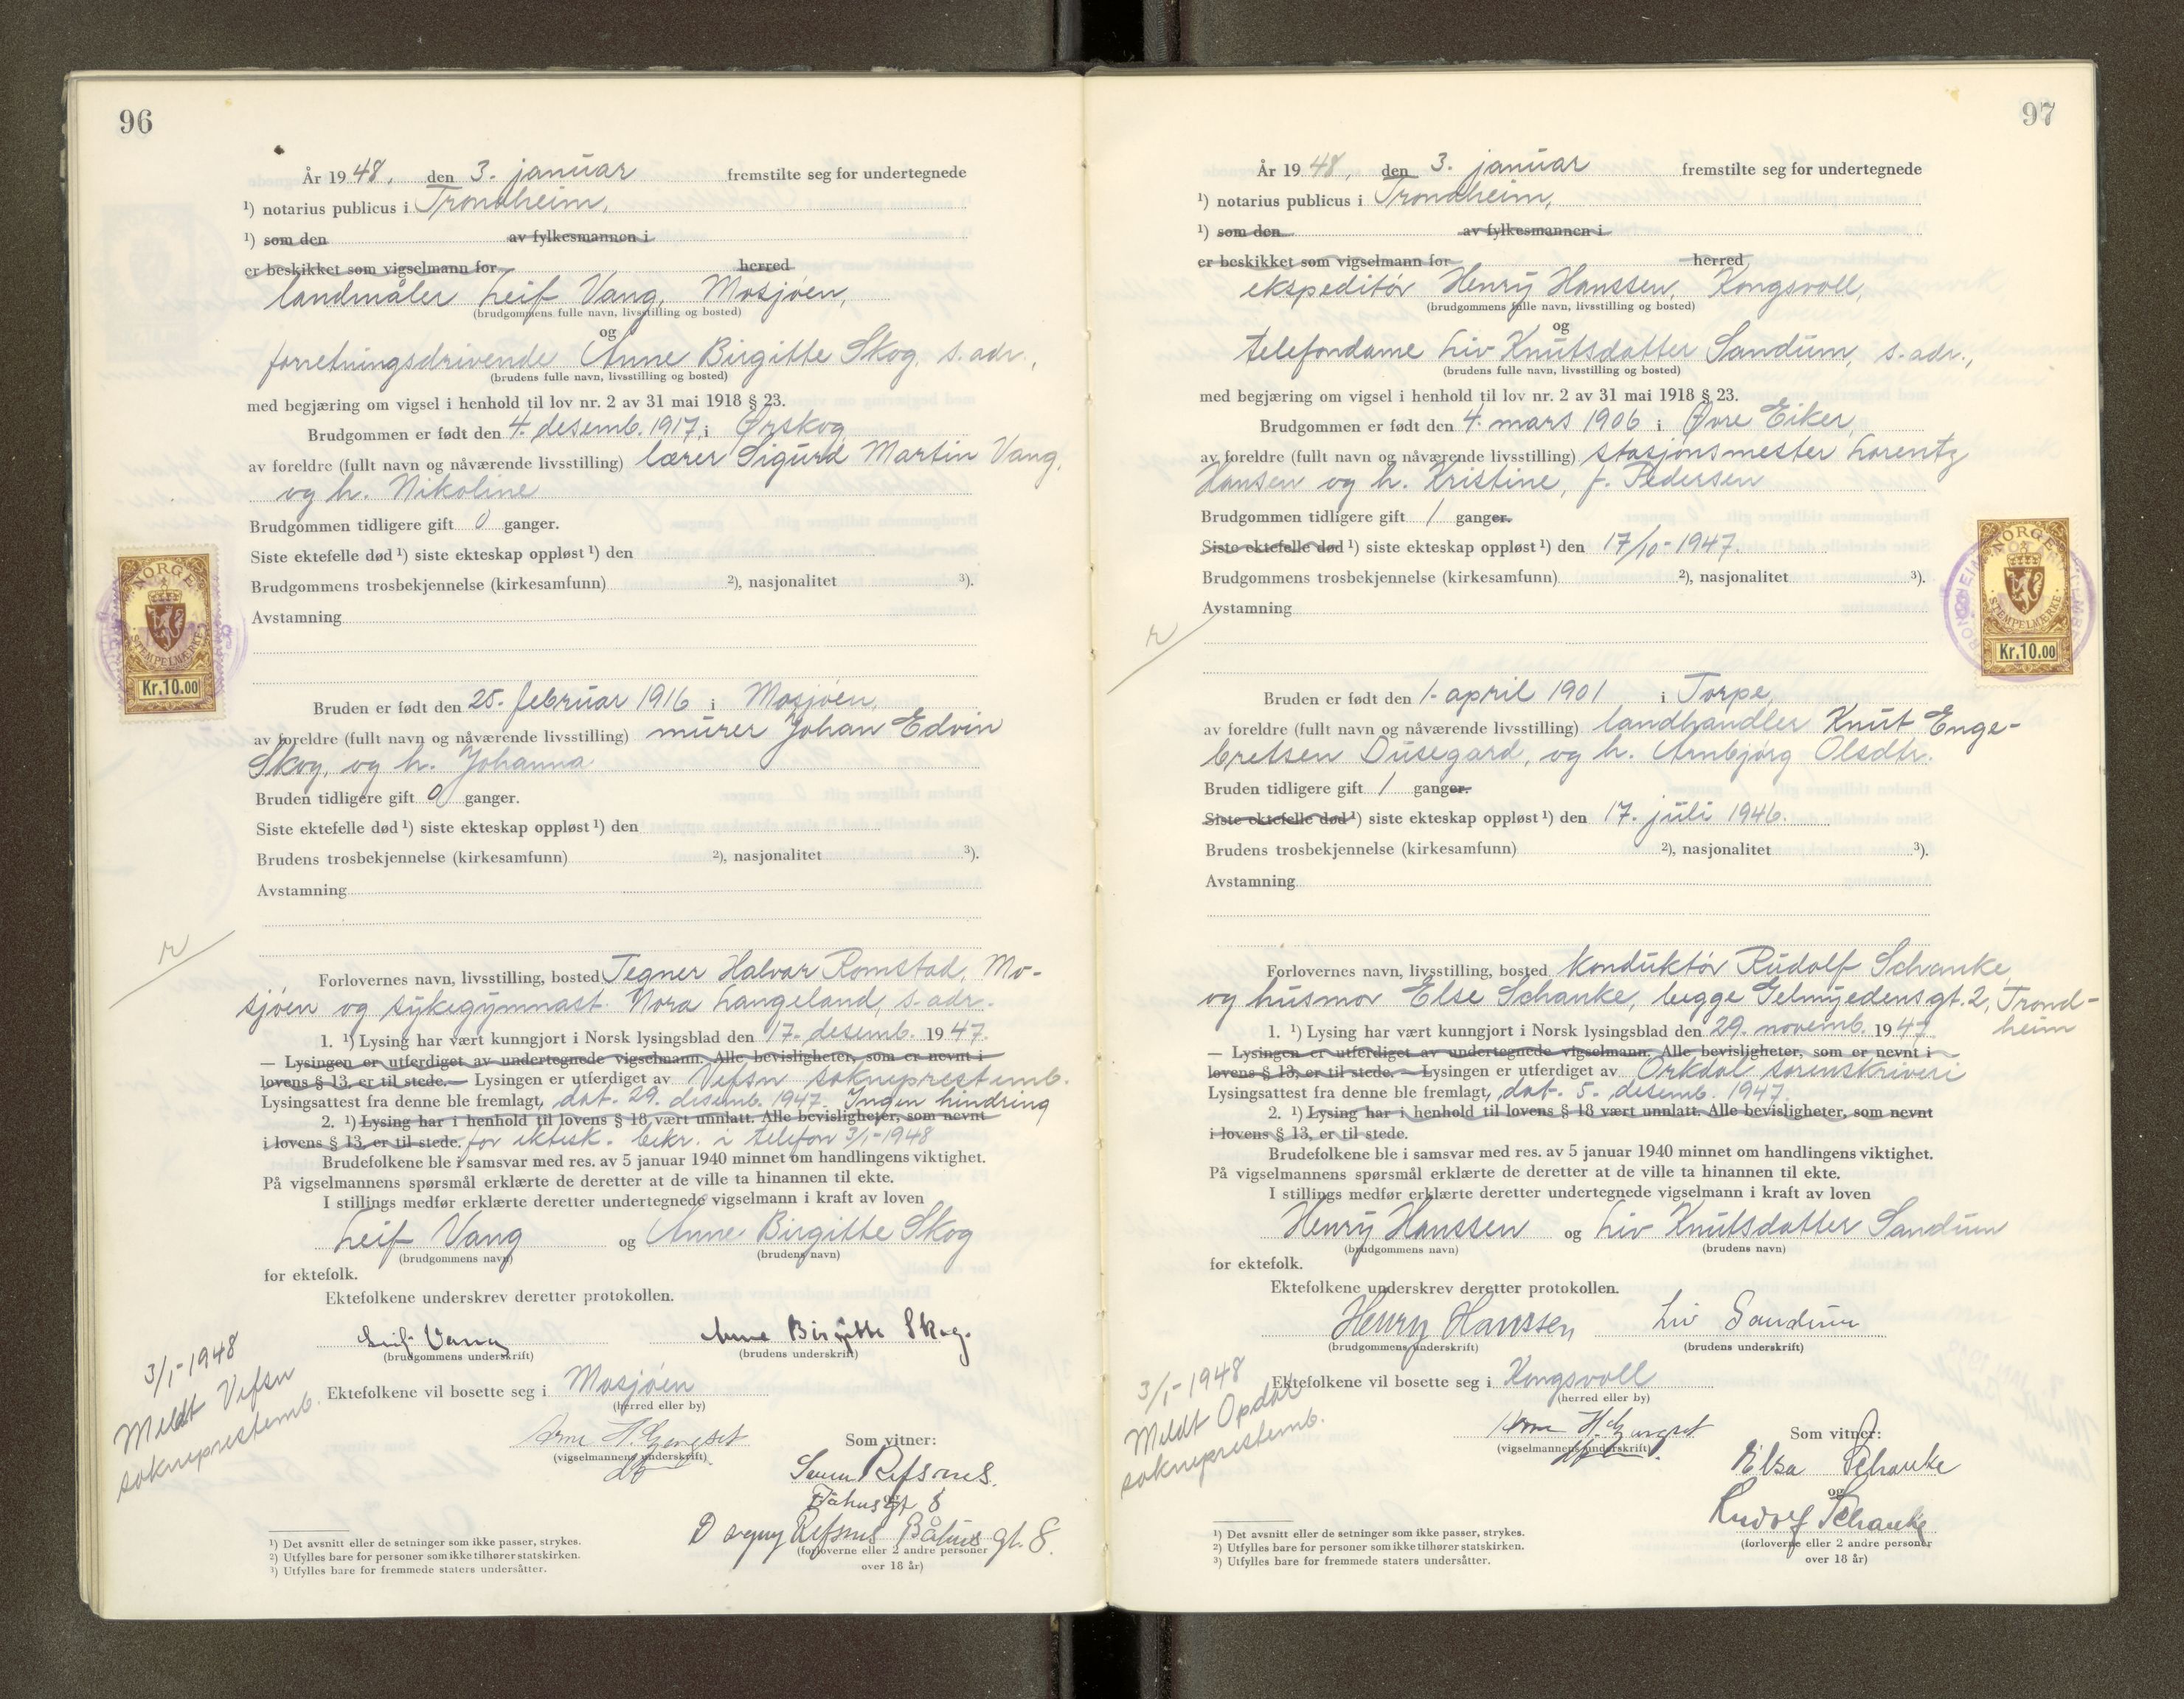 96
År 1948, den 3. januar fremstilte seg for undertegnede
¹) notarius publicus i Trondheim,
¹) som den av fylkesmannen i
er beskikket som vigselmann for herred
landmåler Leif Vang, Mosjøen,
(brudgommens fulle navn, livsstilling og bosted)
og
forretningsdrivende Anne Birgitte Skog, s. adr.,
(brudens fulle navn, livsstilling og bosted)
med begjæring om vigsel i henhold til lov nr. 2 av 31 mai 1918 § 23.
Brudgommen er født den 4. desemb. 1917, i Ørskog
av foreldre (fullt navn og nåværende livsstilling) lærer Sigurd Martin Vang,
og h. Nikoline
Brudgommen tidligere gift 0 ganger.
Siste ektefelle død ¹) siste ekteskap oppløst ¹) den
Brudgommens trosbekjennelse (kirkesamfunn) ²), nasjonalitet ³).
Avstamning
NORGE
STEMPELMÆRKE
Kr.10.00
Bruden er født den 25. februar 1916 i Mosjøen,
av foreldre (fullt navn og nåværende livsstilling) murer Johan Edvin
Skog, og h. Johanna
Bruden tidligere gift 0 ganger.
Siste ektefelle død ¹) siste ekteskap oppløst ¹) den
Brudens trosbekjennelse (kirkesamfunn) ²), nasjonalitet ³).
Avstamning
Forlovernes navn, livsstilling, bosted Tegner Halvar Romstad, Mo-
sjøen og sykegymnast Nora Langeland, s. adr.
1. ¹) Lysing har vært kunngjort i Norsk lysingsblad den 17. desemb. 1947.
— Lysingen er utferdiget av undertegnede vigselmann. Alle bevisligheter, som er nevnt i
lovens § 13, er til stede. — Lysingen er utferdiget av Vefsn sokneprestemb.
Lysingsattest fra denne ble fremlagt, dat. 29. desemb. 1947. Ingen hindring
2. ¹) Lysing har i henhold til lovens § 18 vært unnlatt. Alle bevisligheter, som nevnt
i lovens § 13, er til stede. for ektesk. bekr. i telefon 3/1-1948
Brudefolkene ble i samsvar med res. av 5 januar 1940 minnet om handlingens viktighet.
På vigselmannens spørsmål erklærte de deretter at de ville ta hinannen til ekte.
I stillings medfør erklærte deretter undertegnede vigselmann i kraft av loven
Leif Vang og Anne Birgitte Skog
(brudgommens navn) (brudens navn)
for ektefolk.
Ektefolkene underskrev deretter protokollen.
Leif Vang Anne Birgitte Skog.
(brudgommens underskrift) (brudens underskrift)
3/1-1948
Meldt Vefsn
sokneprestemb.
Ektefolkene vil bosette seg i Mosjøen
(herred eller by)
Arne H.
(vigselmannens underskrift)
Som vitner:
Refsnes.
Båhus gt 8
og
Dagny Refsnes Båhus gt. 8.
(forloverne eller 2 andre personer
over 18 år)
¹) Det avsnitt eller de setninger som ikke passer, strykes.
²) Utfylles bare for personer som ikke tilhører statskirken.
³) Utfylles bare for fremmede staters undersåtter.
97
År 1948, den 3. januar fremstilte seg for undertegnede
¹) notarius publicus i Trondheim,
¹) som den av fylkesmannen i
er beskikket som vigselmann for herred
ekspeditør Henry Hanssen, Kongsvoll,
(brudgommens fulle navn, livsstilling og bosted)
og
telefondame Liv Knutsdatter Sandum, s. adr.,
(brudens fulle navn, livsstilling og bosted)
med begjæring om vigsel i henhold til lov nr. 2 av 31 mai 1918 § 23.
Brudgommen er født den 4. mars 1906 i Øvre Eiker,
av foreldre (fullt navn og nåværende livsstilling) stasjonsmester Lorentz
Hansen og h. Kristine, f. Pedersen
Brudgommen tidligere gift 1 ganger.
Siste ektefelle død ¹) siste ekteskap oppløst ¹) den 17/10-1947.
Brudgommens trosbekjennelse (kirkesamfunn) ²), nasjonalitet ³).
Avstamning
NORGE
STEMPELMÆRKE
Kr.10.00
Bruden er født den 1. april 1901 i Torpe,
av foreldre (fullt navn og nåværende livsstilling) landhandler Knut Enge-
bretsen Dusegard, og h. Arnbjørg Olsdtr.
Bruden tidligere gift 1 ganger.
Siste ektefelle død ¹) siste ekteskap oppløst ¹) den 17. juli 1946.
Brudens trosbekjennelse (kirkesamfunn) ²), nasjonalitet ³).
Avstamning
Forlovernes navn, livsstilling, bosted konduktør Rudolf Schanke,
og husmor Else Schanke, begge Gelmyedensgt. 2, Trond-
heim
1. ¹) Lysing har vært kunngjort i Norsk lysingsblad den 29. novemb. 1947
— Lysingen er utferdiget av undertegnede vigselmann. Alle bevisligheter, som er nevnt i
lovens § 13, er til stede. — Lysingen er utferdiget av Orkdal sorenskriveri
Lysingsattest fra denne ble fremlagt, dat. 5. desemb. 1947.
2. ¹) Lysing har i henhold til lovens § 18 vært unnlatt. Alle bevisligheter, som nevnt
i lovens § 13, er til stede.
Brudefolkene ble i samsvar med res. av 5 januar 1940 minnet om handlingens viktighet.
På vigselmannens spørsmål erklærte de deretter at de ville ta hinannen til ekte.
I stillings medfør erklærte deretter undertegnede vigselmann i kraft av loven
Henry Hanssen og Liv Knutsdatter Sandum
(brudgommens navn) (brudens navn)
for ektefolk.
Ektefolkene underskrev deretter protokollen.
Henry Hanssen Liv Sandum
(brudgommens underskrift) (brudens underskrift)
3/1-1948
Meldt Opdal
sokneprestemb.
Ektefolkene vil bosette seg i Kongsvoll
(herred eller by)
Arne H.
(vigselmannens underskrift)
Som vitner:
Elsa Schanke
og
Rudolf Schanke
(forloverne eller 2 andre personer
over 18 år)
¹) Det avsnitt eller de setninger som ikke passer, strykes.
²) Utfylles bare for personer som ikke tilhører statskirken.
³) Utfylles bare for fremmede staters undersåtter.